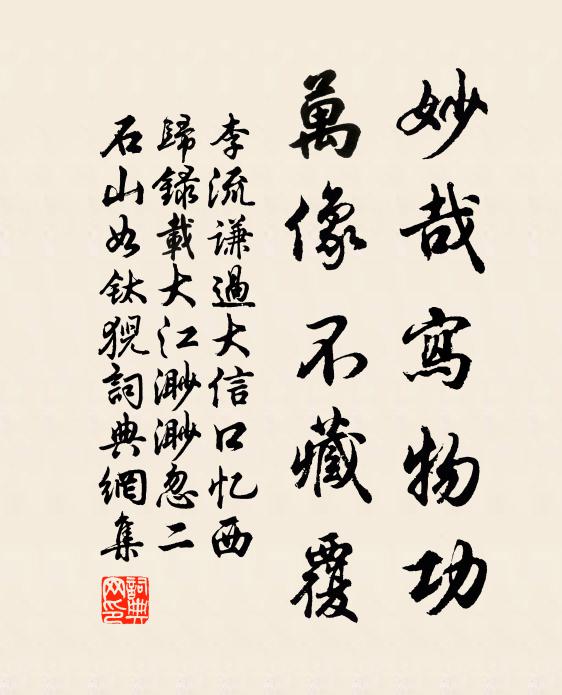 妙哉寫物功
萬像不藏覆
李流謙過大信口忆西
歸録載大江渺渺忽二
石山如鈦猊詞典網集
詞典网印